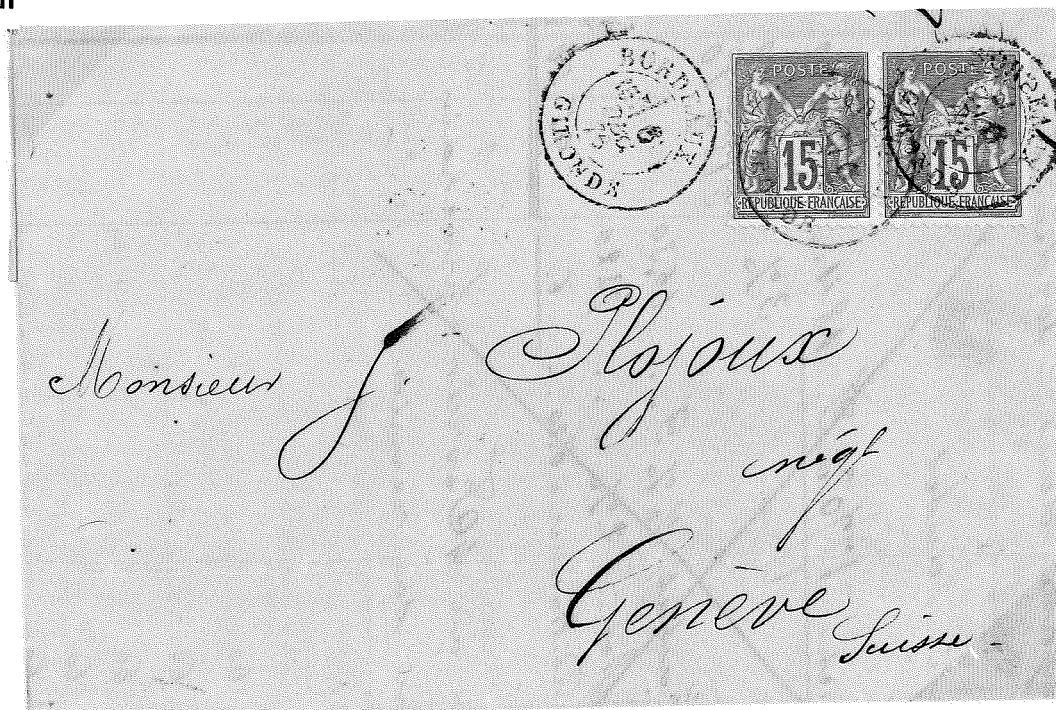 BORDEAUX
GIRONDE
POSTE
15
REPUBLIQUE FRANÇAISE
POSTE
15
REPUBLIQUE FRANÇAISE
Monsieur J. Plojoux
négt
Genève
Suisse